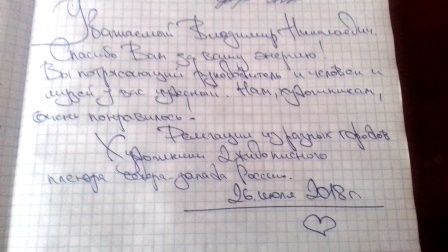 Уважаемый Владимир Николаевич.
Спасибо Вам за вашу энергию!
Вы потрясающий руководитель и человек и
музей у вас чудесный. Нам, художникам,
очень понравилось.
Делегации из разных городов
Художники 2 живописного
пленэра северо-запада России.
26 июля 2018 г.